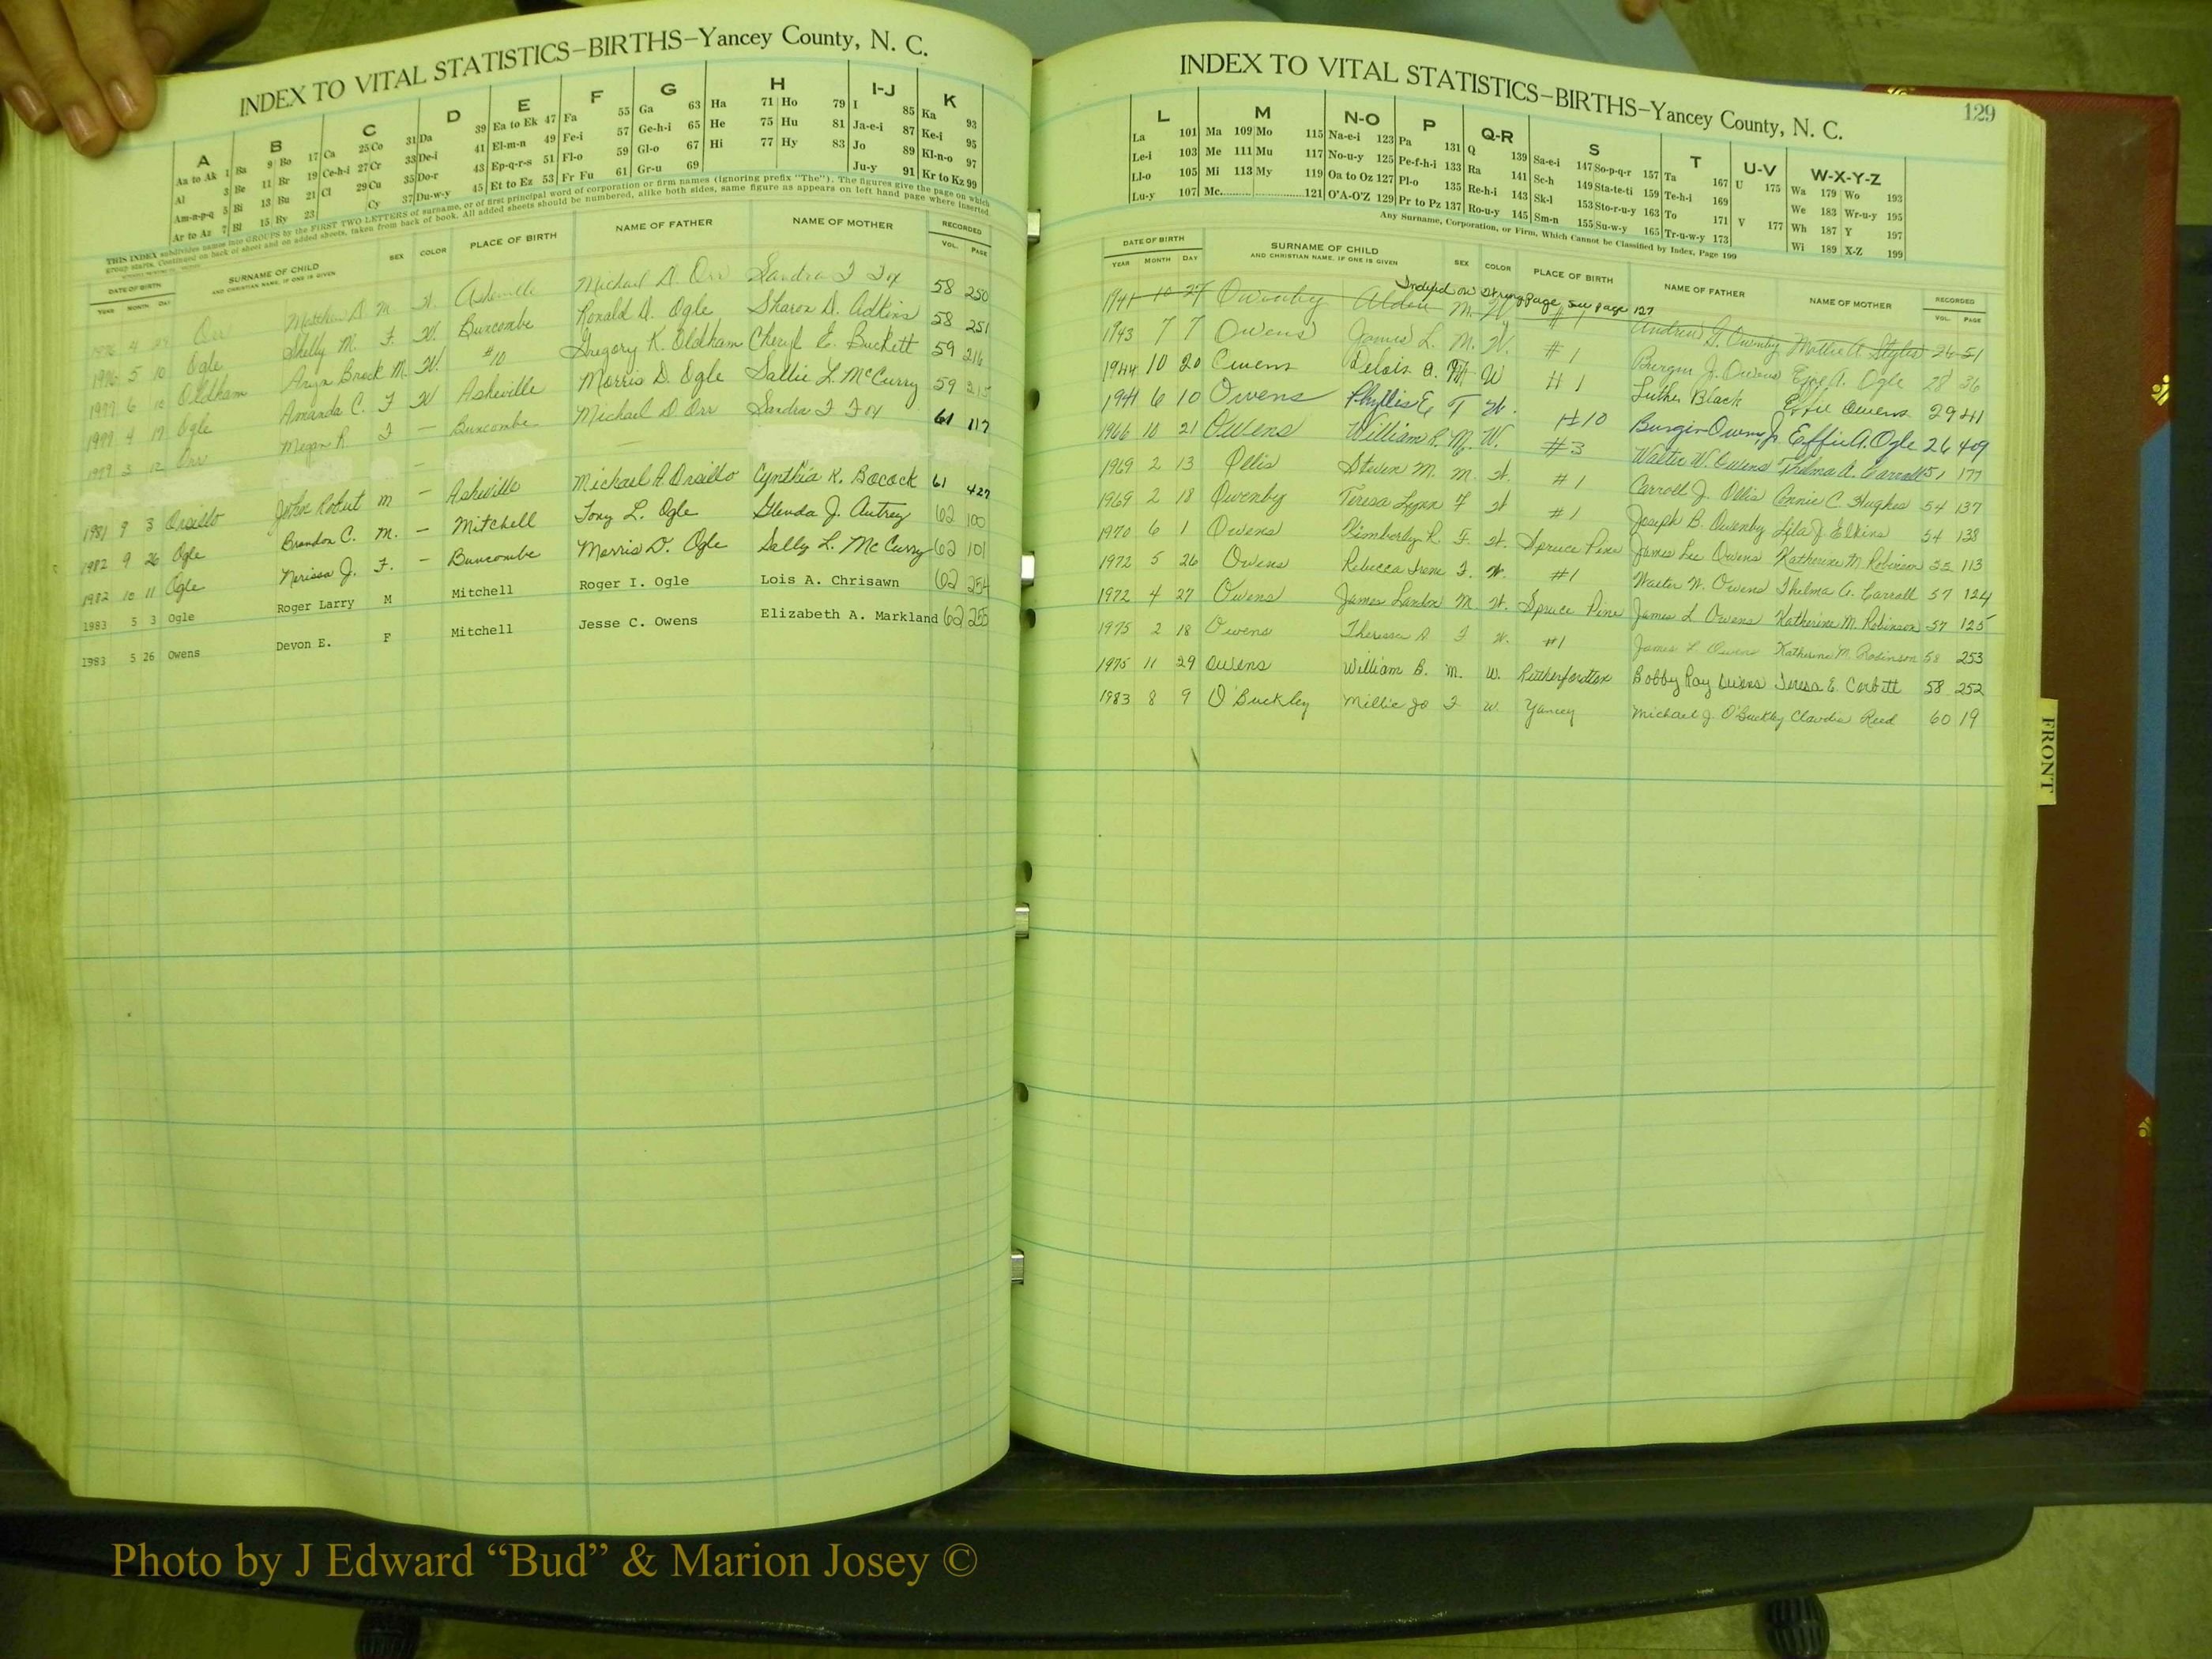 INDEX TO VITAL STATISTICS–BIRTHS–Yancey County, N. C.
A B C D E F G H I-J K
Aa to Ak 1 Ba 9 Bo 17 Ca 25 Co 31 Da 39 Ea to Ek 47 Fa 55 Ga 63 Ha 71 Ho 79 I 85 Ka 93
Al 3 Be 11 Br 19 Ce-h-i 27 Cr 33 De-i 41 El-m-n 49 Fe-i 57 Ge-h-i 65 He 75 Hu 81 Ja-e-i 87 Ke-i 95
Am-n-p-q 5 Bi 13 Bu 21 Cl 29 Cu 35 Do-r 43 Ep-q-r-s 51 Fl-o 59 Gl-o 67 Hi 77 Hy 83 Jo 89 Kl-n-o 97
Ar to Az 7 Bl 15 By 23 Cy 37 Du-w-y 45 Et to Ez 53 Fr Fu 61 Gr-u 69 Ju-y 91 Kr to Kz 99
THIS INDEX subdivides names into GROUPS by the FIRST TWO LETTERS of surname, or of first principal word of corporation or firm names (ignoring prefix "The"). The figures give the page on which
group starts. Continued on back of sheet and on added sheets, taken from back of book. All added sheets should be numbered, alike both sides, same figure as appears on left hand page where inserted.
DATE OF BIRTH SURNAME OF CHILD SEX COLOR PLACE OF BIRTH NAME OF FATHER NAME OF MOTHER RECORDED
YEAR MONTH DAY AND CHRISTIAN NAME, IF ONE IS GIVEN VOL. PAGE
Orr M. W. Asheville Michael D. Orr Sandra F Fox 58 250
5 10 Ogle Shelly M. F. W. Buncombe Ronald D. Ogle Sharon D. Adkins 58 251
6 10 Oldham Brock M. W. #10 Gregory K. Oldham Cheryl E. Buckett 59 216
4 17 Ogle Amanda C. F W Asheville Morris D. Ogle Sallie L. McCurry 59
3 12 Orr Megan R. F — Buncombe Michael D Orr Sandra F Fox 61 117
1981 9 3 Orsillo John Robert M — Asheville Michael A Orsillo Cynthia K. Bocock 61 427
1982 9 26 Ogle Brandon C. M. — Mitchell Tony L. Ogle Glenda J. Autrey 62 100
1982 10 11 Ogle Nerissa J. F. — Buncombe Morris D. Ogle Sally L. McCurry 62 101
1983 5 3 Ogle Roger Larry M Mitchell Roger I. Ogle Lois A. Chrisawn 62 254
1983 5 26 Owens Devon E. F Mitchell Jesse C. Owens Elizabeth A. Markland 62 255
129
INDEX TO VITAL STATISTICS–BIRTHS–Yancey County, N. C.
L M N-O P Q-R S T U-V W-X-Y-Z
La 101 Ma 109 Mo 115 Na-e-i 123 Pa 131 Q 139 Sa-e-i 147 So-p-q-r 157 Ta 167 U 175 Wa 179 Wo 193
Le-i 103 Me 111 Mu 117 No-u-y 125 Pe-f-h-i 133 Ra 141 Sc-h 149 Sta-te-ti 159 Te-h-i 169 We 183 Wr-u-y 195
Ll-o 105 Mi 113 My 119 Oa to Oz 127 Pl-o 135 Re-h-i 143 Sk-l 153 Sto-r-u-y 163 To 171 V 177 Wh 187 Y 197
Lu-y 107 Mc. 121 O'A-O'Z 129 Pr to Pz 137 Ro-u-y 145 Sm-n 155 Su-w-y 165 Tr-u-w-y 173 Wi 189 X-Z 199
Any Surname, Corporation, or Firm, Which Cannot be Classified by Index, Page 199
DATE OF BIRTH SURNAME OF CHILD SEX COLOR PLACE OF BIRTH NAME OF FATHER NAME OF MOTHER RECORDED
YEAR MONTH DAY AND CHRISTIAN NAME, IF ONE IS GIVEN VOL. PAGE
Indexed on Wrong Page, See Page 127
1941 10 27 Ownby Alden M. W #1 Andrew G. Ownby Mollie A. Styles 26 51
1943 7 7 Owens James L. M. W. #1 J. Owens A. Ogle 28 36
1944 10 20 Owens Delois A. W #1 Luther Black Effie Owens 29 41
1941 6 10 Owens Phyllis E F W. #10 Burgin Owens, Jr. Effie A. Ogle 26 409
1966 10 21 Owens William R. M. W. #3 Walter W. Owens Thelma A. Carroll 51 177
1969 2 13 Ollis Steven M. M. W. #1 Carroll J. Ollis Annie C. Hughes 54 137
1969 2 18 Owenby Teresa Lynn F W #1 Joseph B. Owenby Lila J. Elkins 54 138
1970 6 1 Owens Kimberly R. F. W. Spruce Pine James Lee Owens Katherine M. Robinson 55 113
1972 5 26 Owens Rebecca Irene F. W. #1 Walter W. Owens Thelma A. Carroll 57 124
1972 4 27 Owens James Landon M. W. Spruce Pine James L Owens Katherine M. Robinson 57 125
1975 2 18 Owens Theressa D F W. #1 James L Owens Katherine M. Robinson 58 253
1975 11 29 Owens William B. M. W. Rutherfordton Bobby Ray Owens Teresa E. Corbitt 58 252
1983 8 9 O'Buckley Millie Jo F W. Yancey Michael J. O'Buckley Claudia Reed 60 19
FRONT
Photo by J Edward “Bud” & Marion Josey ©